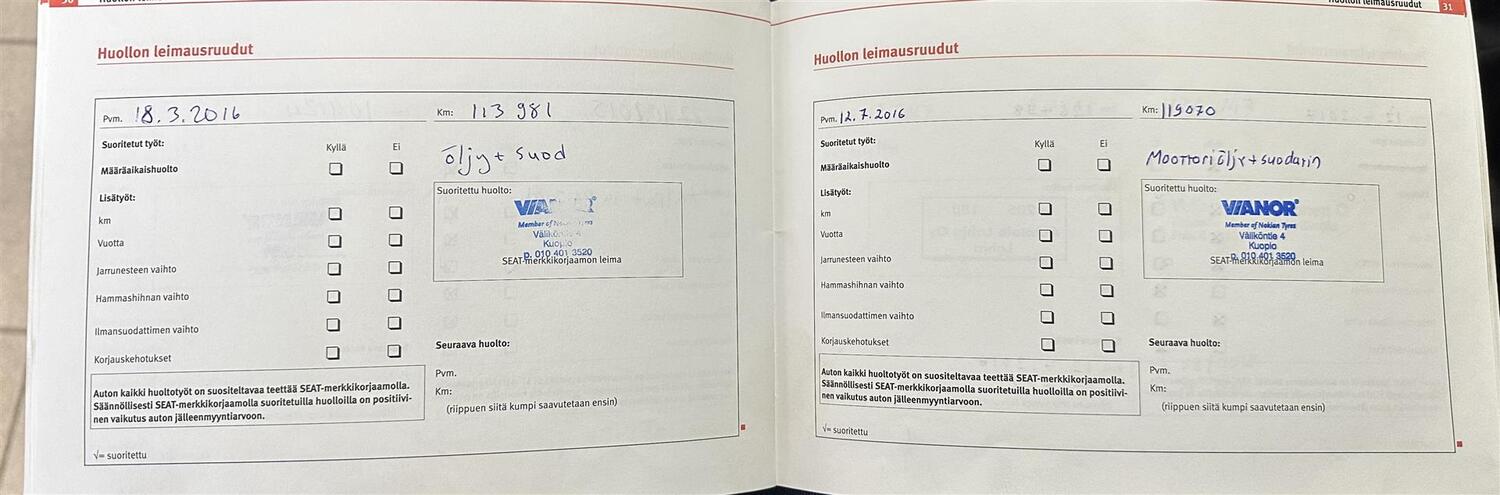 30
Huollon leimausruudut
Pvm. 18.3.2016
Km: 113 981
Suoritetut työt:
Kyllä
Ei
öljy + suod
Määräaikaishuolto
Lisätyöt:
Suoritettu huolto:
km
VIANOR
Member of Nokian Tyres
Väliköntie 4
Kuopio
p. 010 401 3520
SEAT-merkkikorjaamon leima
Vuotta
Jarrunesteen vaihto
Hammashihnan vaihto
Ilmansuodattimen vaihto
Korjauskehotukset
Seuraava huolto:
Pvm.
Km:
(riippuen siitä kumpi saavutetaan ensin)
Auton kaikki huoltotyöt on suositeltavaa teettää SEAT-merkkikorjaamolla.
Säännöllisesti SEAT-merkkikorjaamolla suoritetuilla huolloilla on positiivi-
nen vaikutus auton jälleenmyyntiarvoon.
√= suoritettu
Huollon leimausruudut
31
Huollon leimausruudut
Pvm. 12.7.2016
Km: 119070
Suoritetut työt:
Kyllä
Ei
Moottoriöljy + suodatin
Määräaikaishuolto
Lisätyöt:
Suoritettu huolto:
km
VIANOR
Member of Nokian Tyres
Väliköntie 4
Kuopio
p. 010 401 3520
SEAT-merkkikorjaamon leima
Vuotta
Jarrunesteen vaihto
Hammashihnan vaihto
Ilmansuodattimen vaihto
Korjauskehotukset
Seuraava huolto:
Pvm.
Km:
(riippuen siitä kumpi saavutetaan ensin)
Auton kaikki huoltotyöt on suositeltavaa teettää SEAT-merkkikorjaamolla.
Säännöllisesti SEAT-merkkikorjaamolla suoritetuilla huolloilla on positiivi-
nen vaikutus auton jälleenmyyntiarvoon.
√= suoritettu